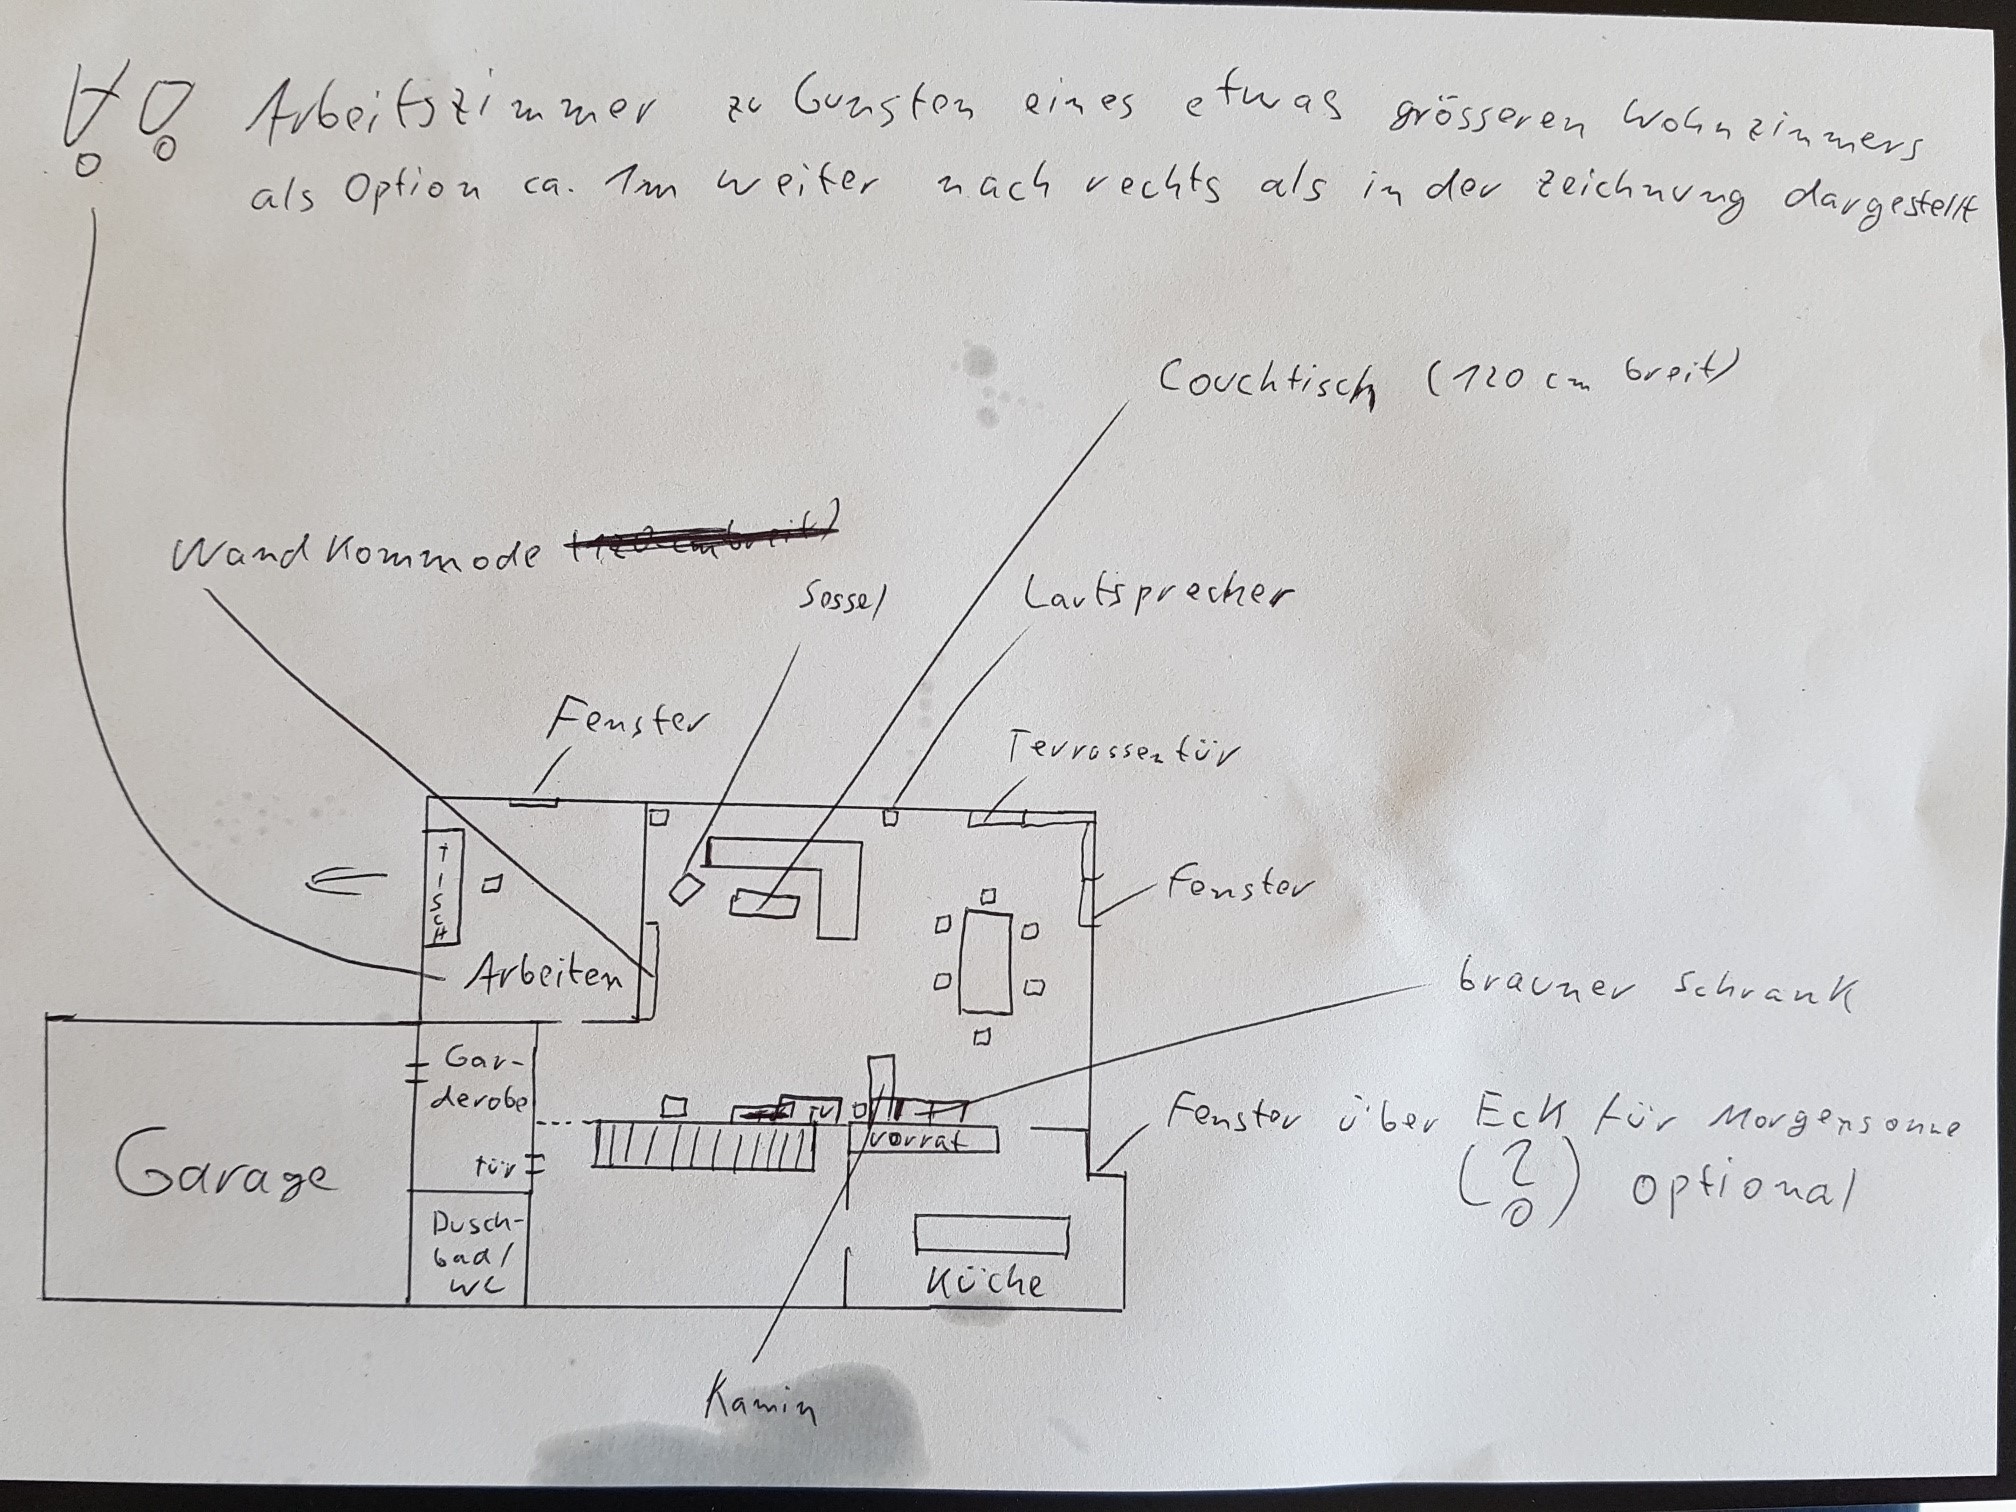 !! Arbeitszimmer zu Gunsten eines etwas grösseren Wohnzimmers
als Option ca. 1m weiter nach rechts als in der Zeichnung dargestellt
Couchtisch (120 cm breit)
Wand Kommode (120 cm breit)
Sessel
Lautsprecher
Fenster
Terrassentür
TISCH
Fenster
Arbeiten
brauner Schrank
Gar-
derobe
TV
Vorrat
Fenster über Eck für Morgensonne
(?) optional
Garage
tür
Dusch-
bad/
WC
Küche
Kamin